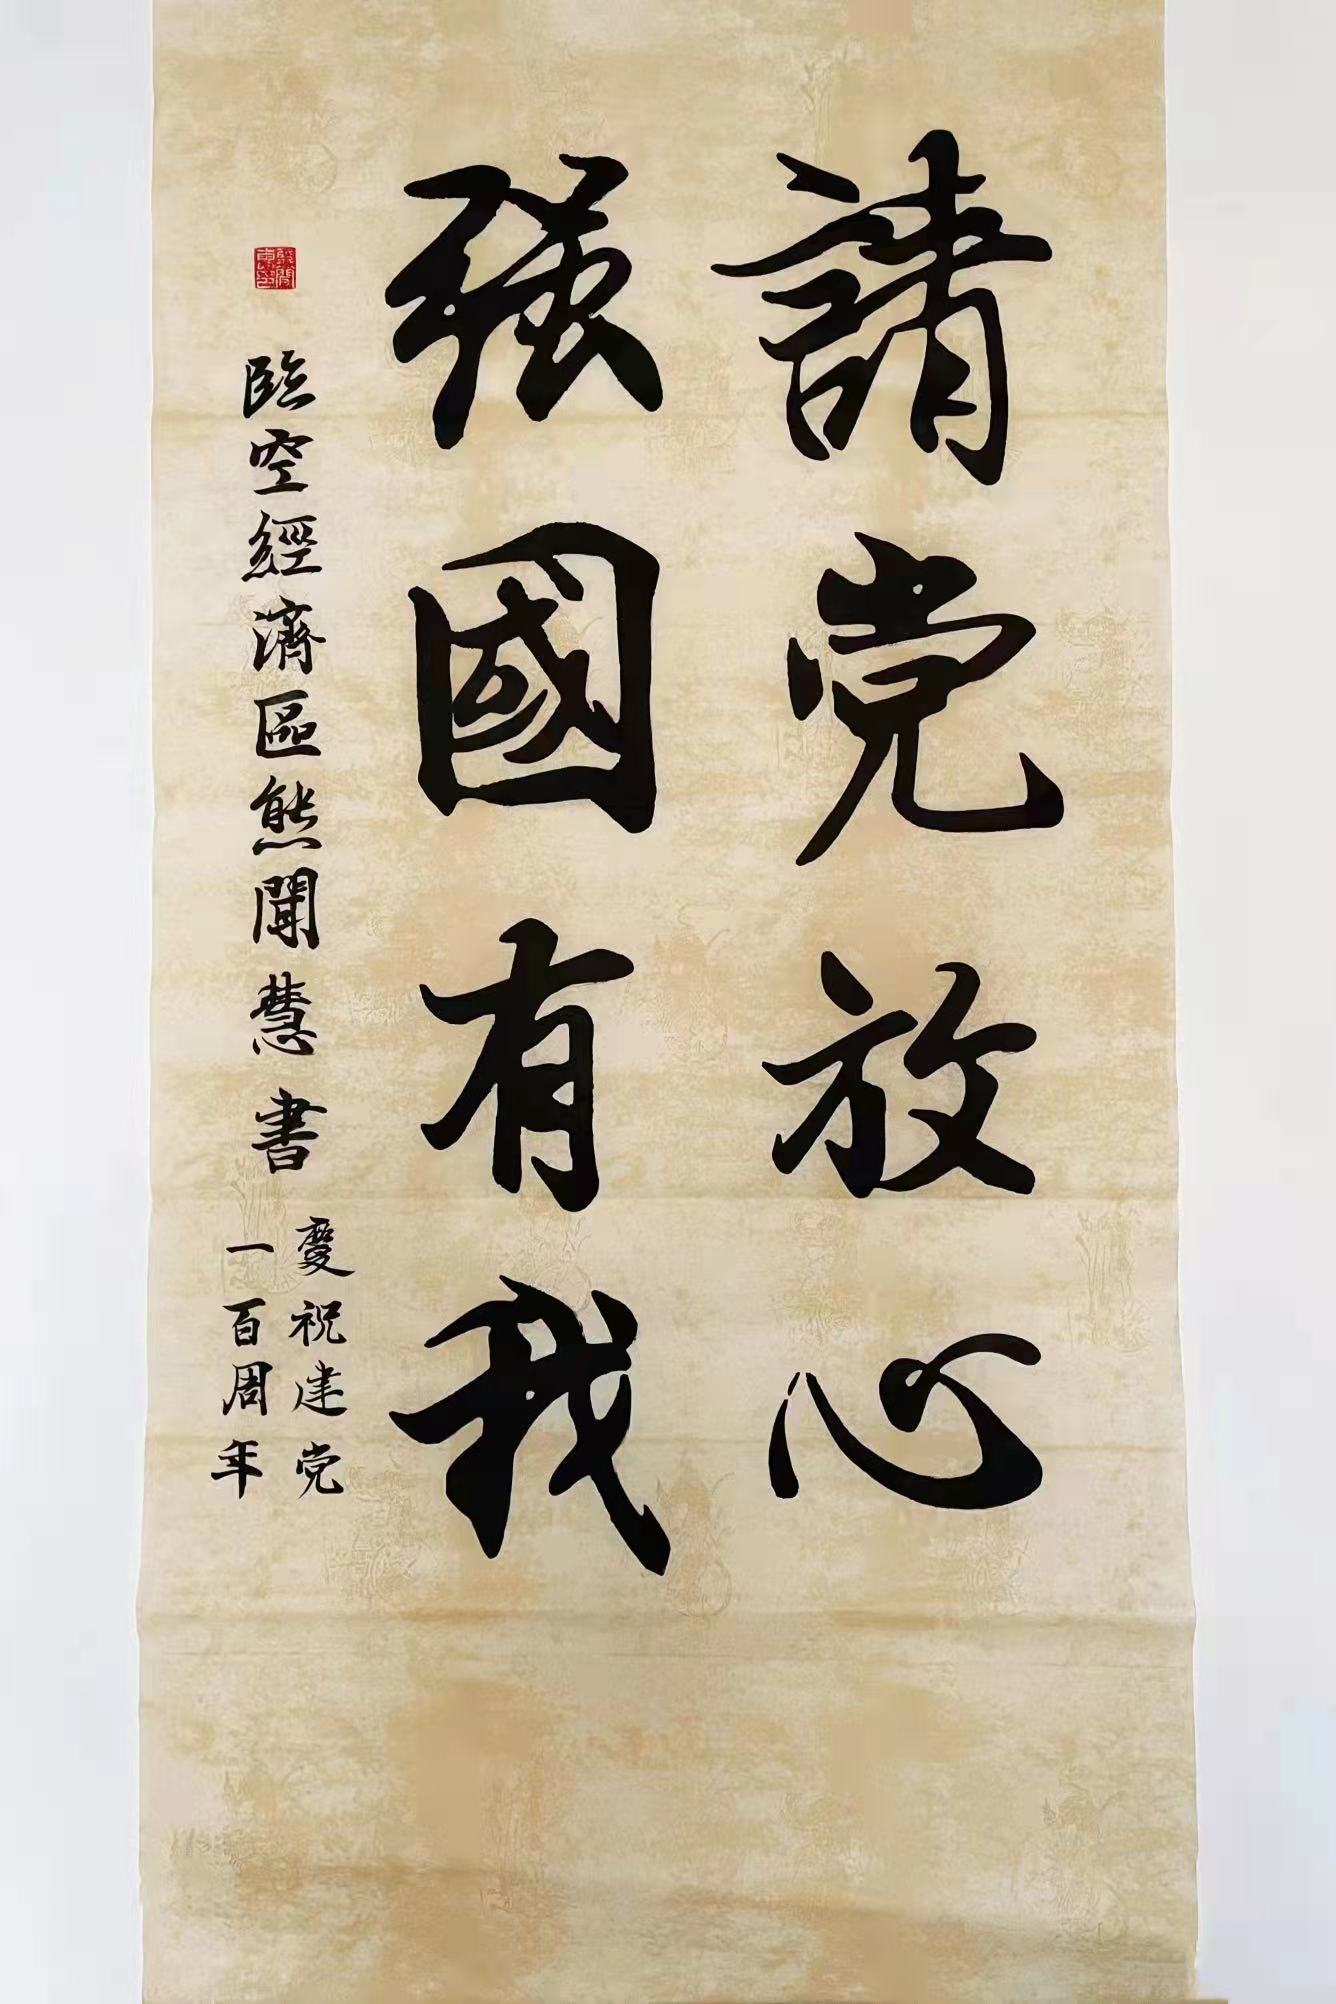 請党放心
强國有我
臨空經濟區熊聞慧書
慶祝建党
一百周年